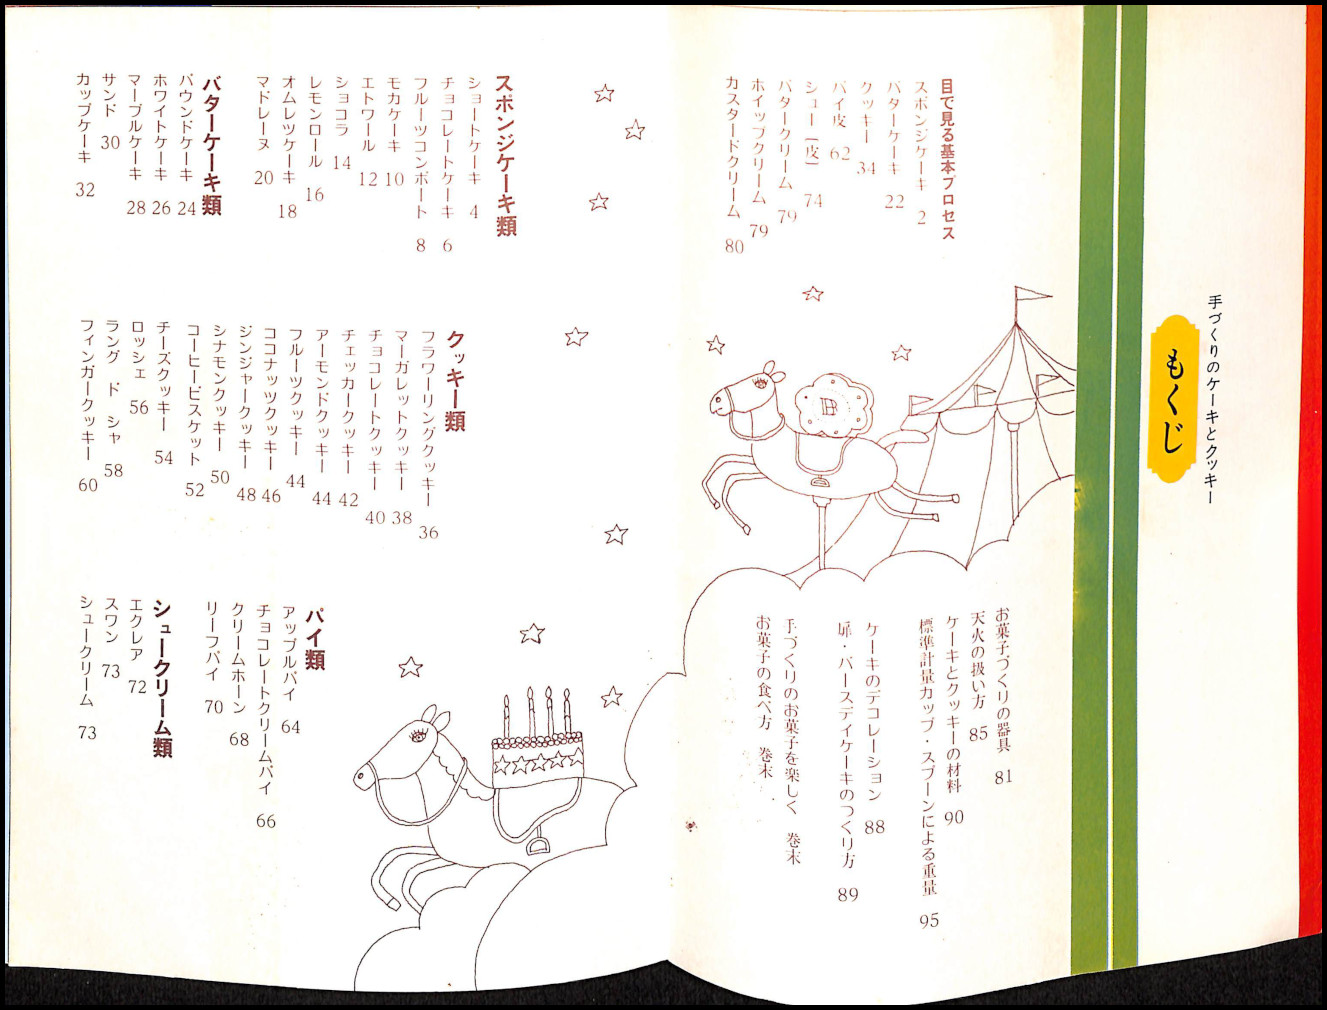 手づくりのケーキとクッキー
もくじ
目で見る基本プロセス
スポンジケーキ 2
バターケーキ 22
クッキー 34
パイ皮 62
シュー(皮) 74
バタークリーム 79
ホイップクリーム 79
カスタードクリーム 80
お菓子づくりの器具 81
天火の扱い方 85
ケーキとクッキーの材料 90
標準計量カップ・スプーンによる重量 95
ケーキのデコレーション 88
扉・バースデイケーキのつくり方 89
手づくりのお菓子を楽しく 巻末
お菓子の食べ方 巻末
スポンジケーキ類
ショートケーキ 4
チョコレートケーキ 6
フルーツコンポート 8
モカケーキ 10
エトワール 12
ショコラ 14
レモンロール 16
オムレツケーキ 18
マドレーヌ 20
バターケーキ類
パウンドケーキ 24
ホワイトケーキ 26
マーブルケーキ 28
サンド 30
カップケーキ 32
クッキー類
フラワーリングクッキー 36
マーガレットクッキー 38
チョコレートクッキー 40
チェッカークッキー 42
アーモンドクッキー 44
フルーツクッキー 44
ココナッツクッキー 46
ジンジャークッキー 48
シナモンクッキー 50
コーヒービスケット 52
チーズクッキー 54
ロッシェ 56
ラング ド シャ 58
フィンガークッキー 60
パイ類
アップルパイ 64
チョコレートクリームパイ 66
クリームホーン 68
リーフパイ 70
シュークリーム類
エクレア 72
スワン 73
シュークリーム 73